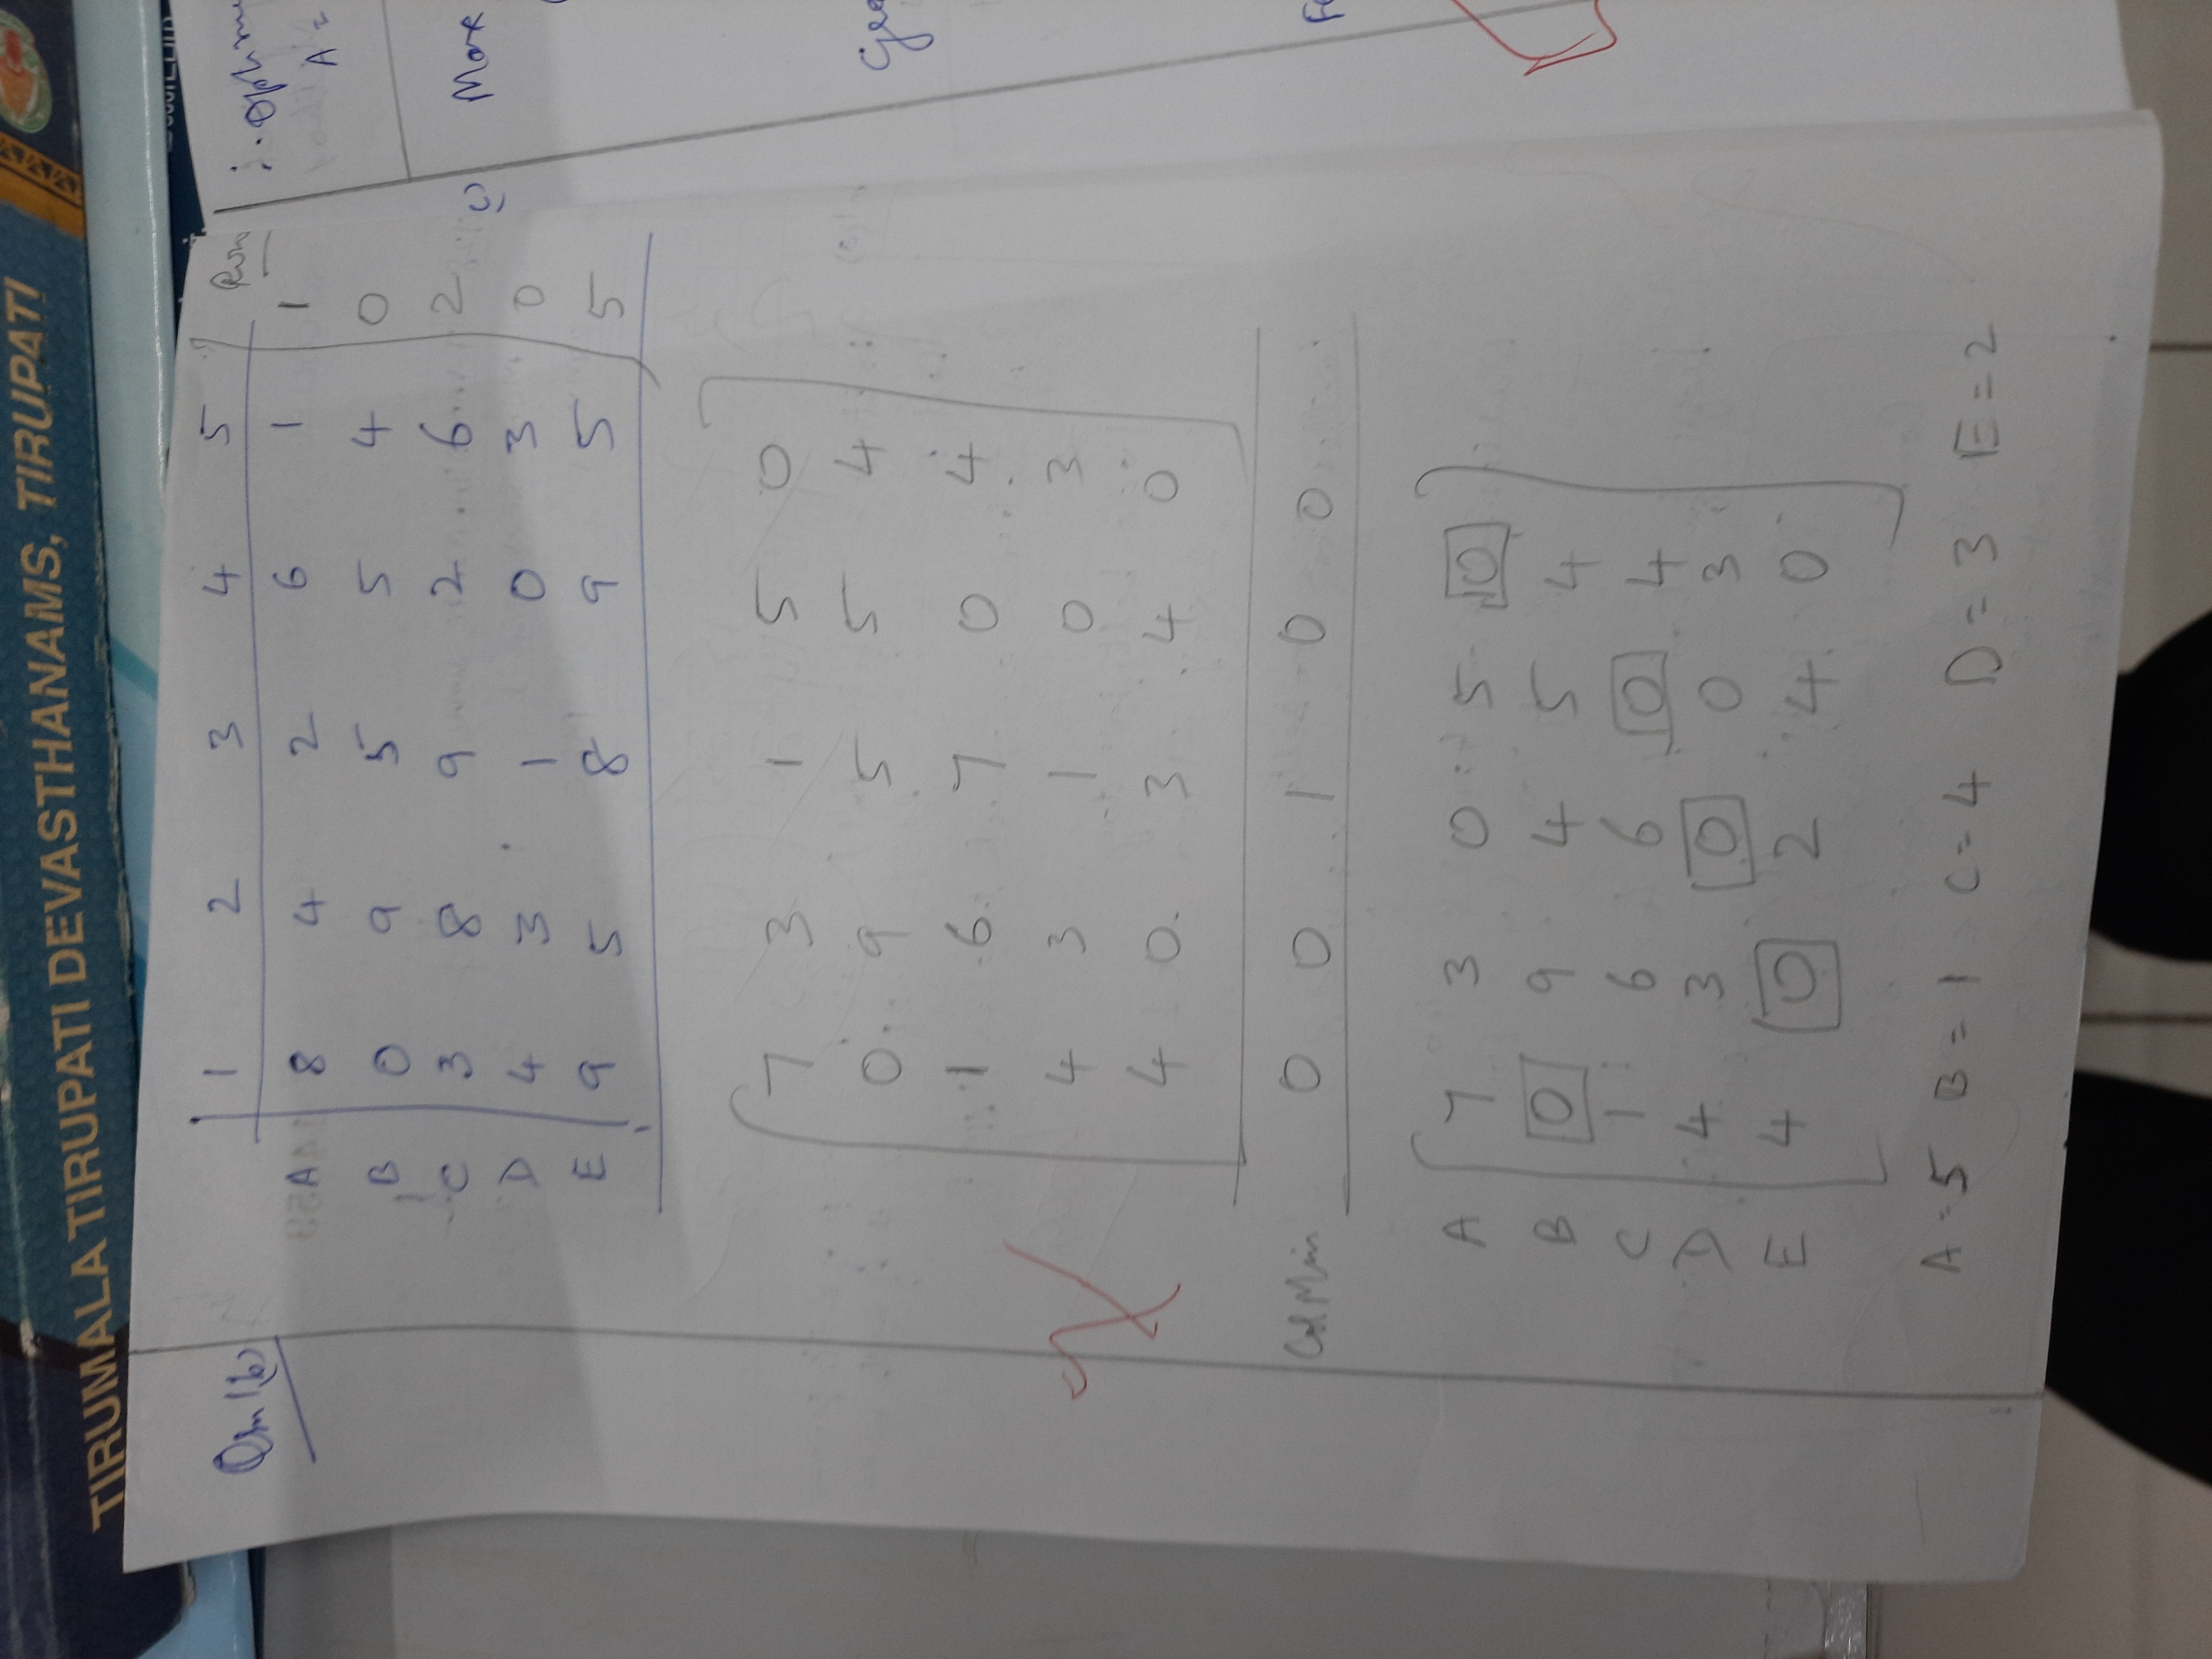 TIRUMALA TIRUPATI DEVASTHANAMS, TIRUPATI
Qn 1(b)
1 2 3 4 5 Row
A 8 4 2 6 1 1
B 0 9 5 5 4 0
C 3 8 9 2 6 2
D 4 3 1 0 3 0
E 9 5 8 9 5 5
7 3 1 5 0
0 9 5 5 4
1 6 7 0 4
4 3 1 0 3
4 0 3 4 0
Col Min 0 0 1 0 0
A 7 3 0 5 0
B 0 9 4 5 4
C 1 6 6 0 4
D 4 3 0 0 3
E 4 0 2 4 0
A = 5 B = 1 C = 4 D = 3 E = 2
A =
c)
Max